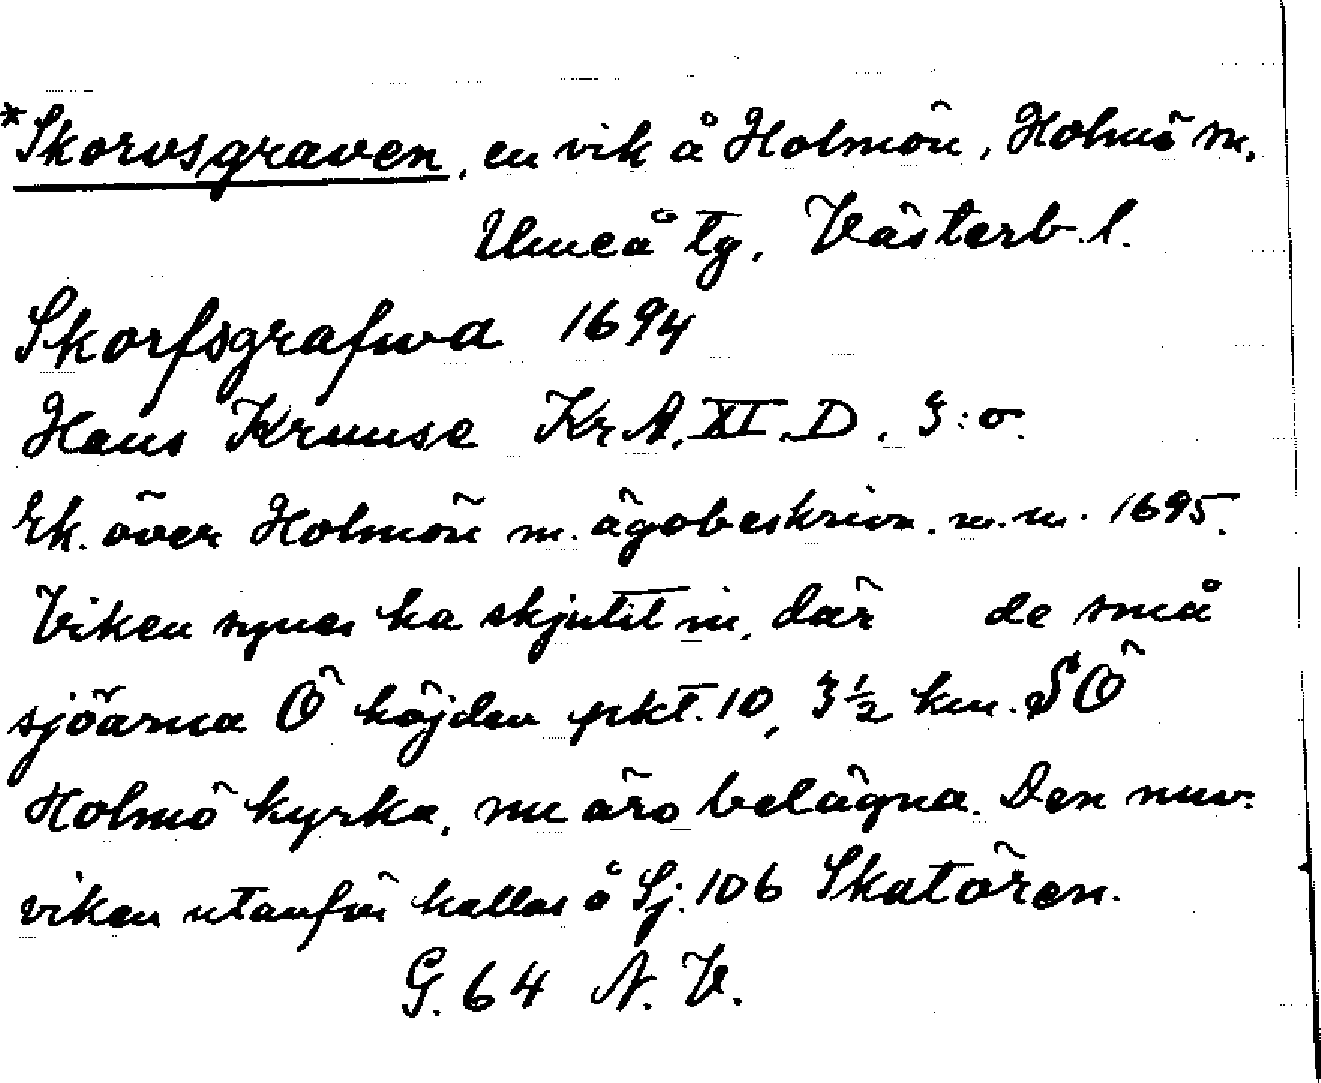 *Skorvsgraven, en vik å Holmön, Holmö sn.
Umeå tg, Västerb. l.
Skorfsgrafwa 1694
Hans Kruuse KrA. XI. D. 3:o.
Ek. över Holmön m. ägobeskrivn. m. m. 1695.
Viken synes ha skjutit in, där de små
sjöarna Ö höjden pkt. 10, 3 1/2 km. SÖ
Holmö kyrka, nu äro belägna. Den nuv.
viken utanför kallas å Sj. 106 Skatören.
G. 64 N. V.